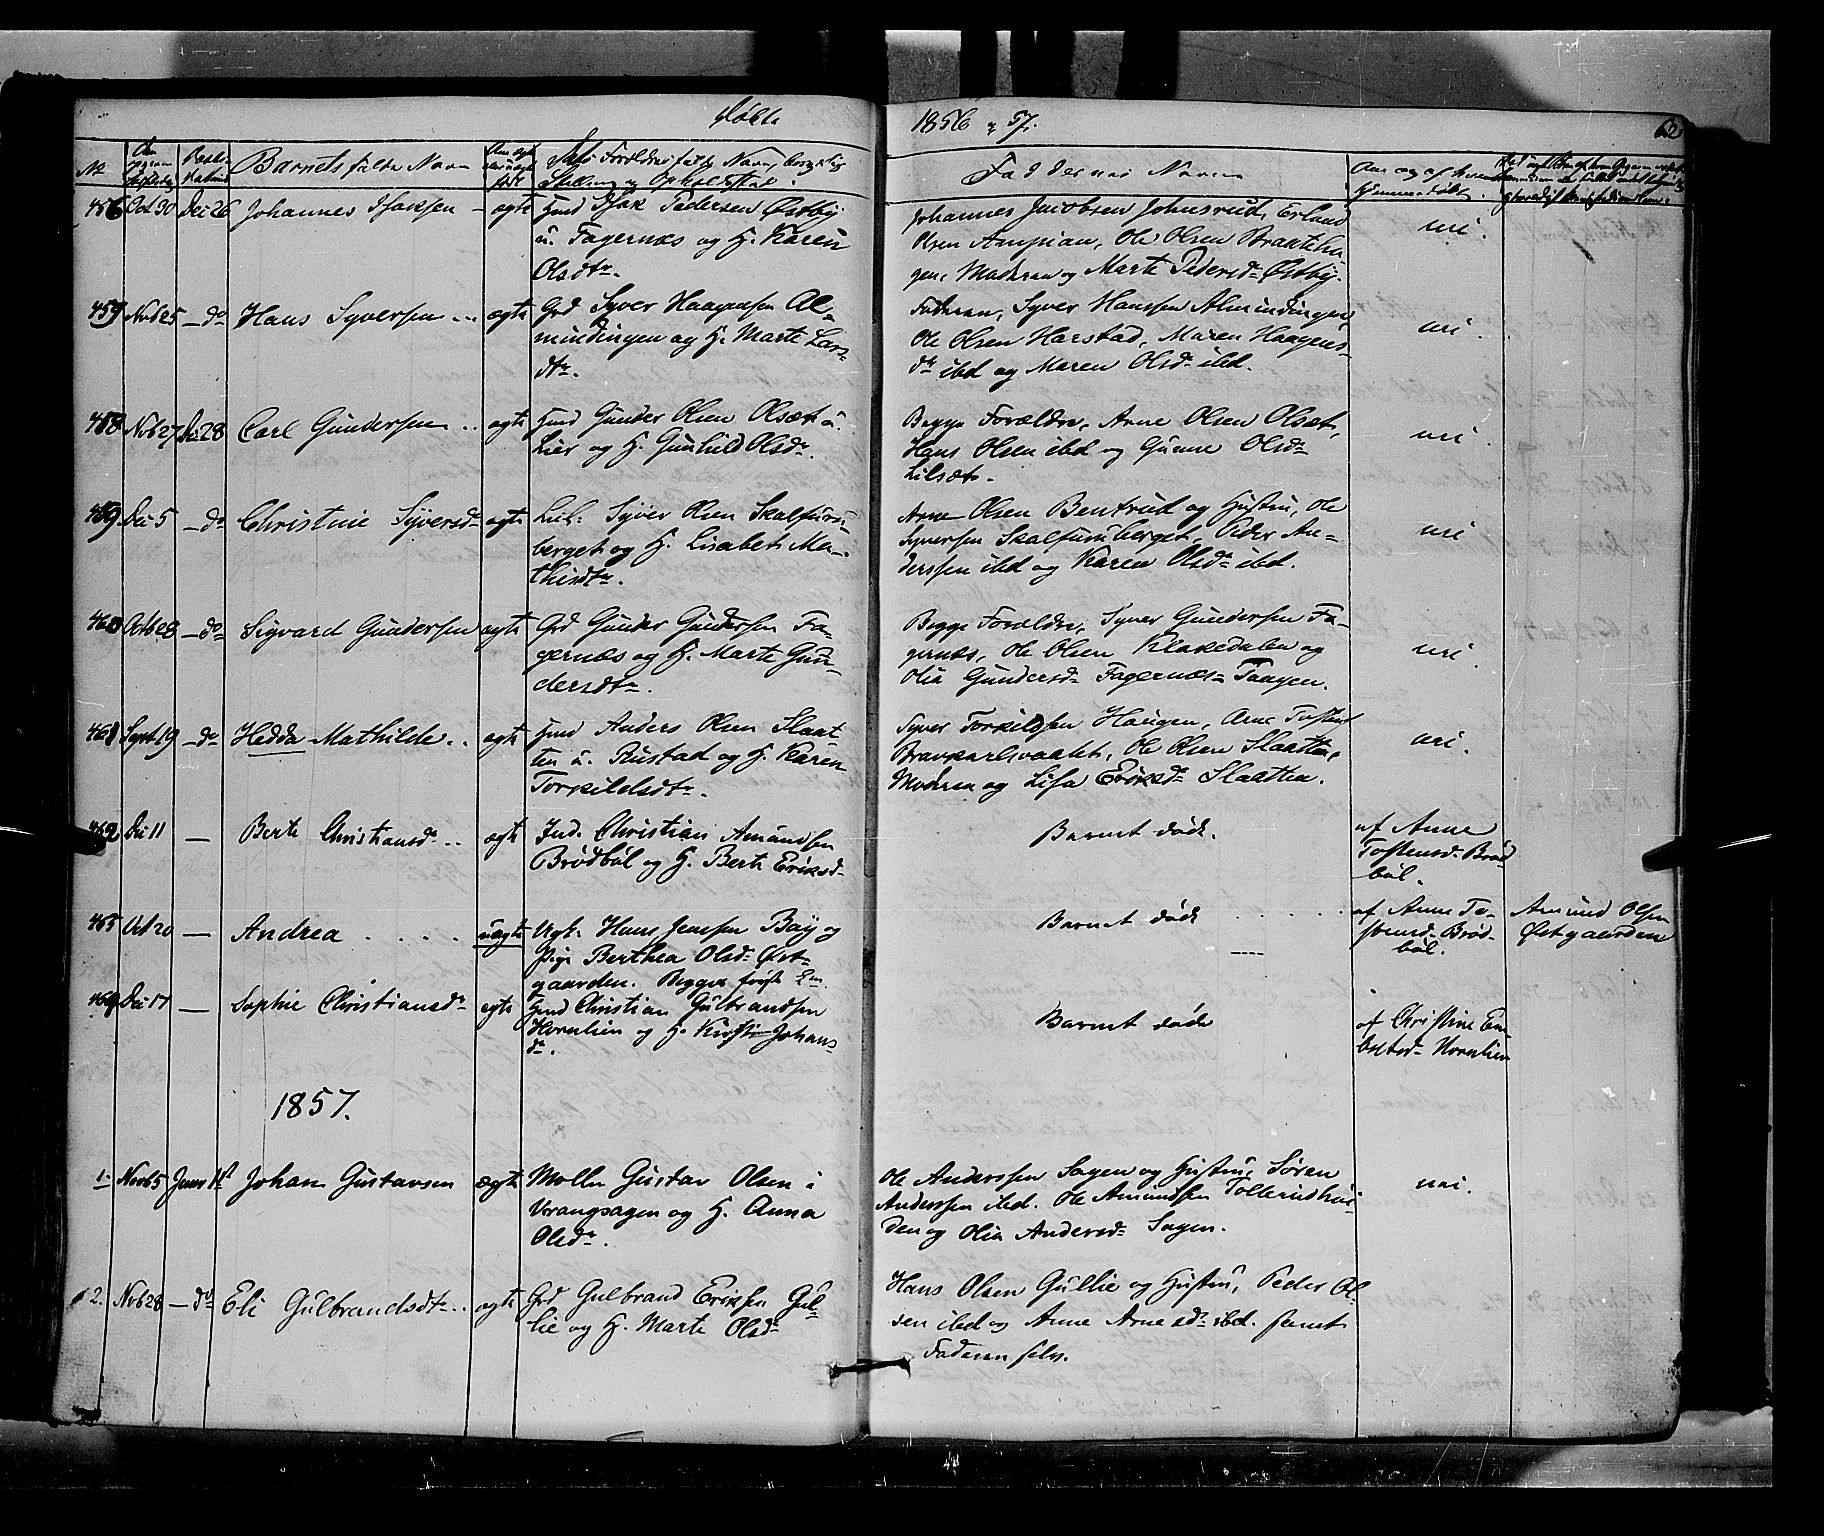 Døbte 1856 og 57. 62
No Barnets fulde Navn Faddernes Navn
456 Oct 30 Dec 26 Johannes Isaksen – ægte Hmd Isak Pedersen Østby
u. Fagernæs og H. Karen
Olsdtr.
Johannes Jacobsen Johnsrud, Erland
Olsen Ampian, Ole Olsen Braatehu-
gen, Moderen og Marte Pedersdr Østby.
nei.
457 Novb 25 – do Hans Syversen ... ægte Grd Syver Haagensen Al-
mindingen og H. Marte Lars-
dtr.
Faderen, Syver Hanssen Almindingen
Ole Olsen Harstad, Maren Haagens-
dr ibd og Maren Olsdr ibd.
nei.
458 Novb 27 Dec 28 Carl Gundersen .. ægte Hmd Gunder Olsen Olsæt u.
Lier og H. Gunhild Olsdr.
Begge Forældre, Arne Olsen Olsæt,
Hans Olsen ibd og Olsdr
Lilsæt.
nei.
459 Dec 5 – do Christine Syversdr ægte Syver Olsen Skalfuru-
berget og H. Lisabet Ma-
thisdtr.
Arne Olsen Bentrud og Hustru, Ole
Syversen Skalfuruberget, Peder An-
derssen ibd og Karen Olsdr ibd.
nei
460 Octb 28 – do Sigvard Gundersen ægte Grd Gunder Gundersen Fa-
gernæs og H. Marte Gun-
dersdtr.
Begge Forældre, Syver Gundersen Fa-
gernæs, Ole Olsen Klakedalen og
Olia Gundersdr Fagernæs-Tangen.
nei.
461 Sept 19 – do Hedda Mathilde .. ægte Hmd Anders Olsen Slaat-
ten u. Rustad og H. Karen
Torkildsdtr.
Syver Torkildsen Haugen, Arne Tostens
Ole Olsen Slaatten,
Moderen og Lisa Eriksdr Slaatten.
nei.
462 Dec 11 – Berte Christiansdr .. ægte Ind. Christian Amundsen
Brødbøl og H. Berte Eriksdr
Barnet døde.
af Anne
Tostensdr Brød-
bøl.
463 Oct 20 – Andrea . . . . uægte Ugk. Hans Jensen Bay og
Pige Berthea Olsdr Øst-
gaarden. Begges første
Barnet døde . . . .
af Anne To-
stensdr Brød-
bøl.
Amund Olsen
Østgaarden
464 Dec 17 – Sophie Christiansdr ægte Hmd Christian Gulbrandsen
Hornlien og H. Kirsti Johans-
dr.
Barnet døde
af Christine En-
Hornlien
1857.
1. Novb 5 Janr 1st Johan Gustavsen ægte Møller Gustav Olsen i
Vrangsagen og H. Anna
Olsdr.
Ole Anderssen Sagen og Hustru, Søren
Anderssen ibd. Ole Amundsen Tollerudhei-
den og Olia Andersdr Sagen.
nei.
2. Novb 28 – do Eli Gulbrandsdtr .. ægte Grd Gulbrand Eriksen Gul-
lie og H. Marte Olsdr
Hans Olsen Gullie og Hustru, Peder Ol-
sen ibd og Anne Arnesdr ibd. samt
Faderen selv.